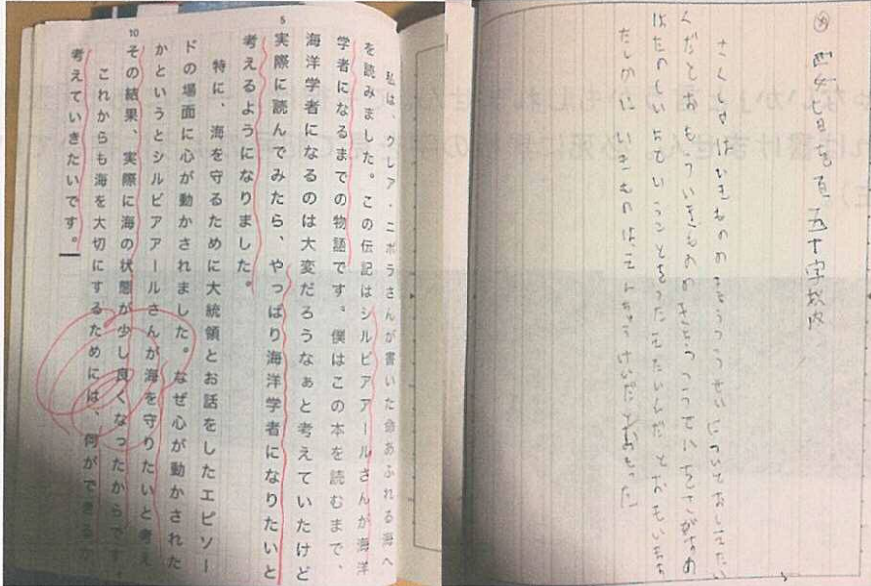 五十字以内
さくしゃはいきものの きょうつうせいについておしえたい
んだとおもういきものの きょうつうせいをさがすの
はたのしいよていうことをつたえたいんだ とおもいます
たしかに いきものは とおもった
私は、クレア・ニボラさんが書いた命あふれる海へ
を読みました。この伝記はシルビアアールさんが海洋
学者になるまでの物語です。僕はこの本を読むまで、
海洋学者になるのは大変だろうなぁと考えていたけど
5
実際に読んでみたら、やっぱり海洋学者になりたいと
考えるようになりました。
特に、海を守るために大統領とお話をしたエピソー
ドの場面に心が動かされました。なぜ心が動かされた
かというとシルビアアールさんが海を守りたいと考え
10
その結果、実際に海の状態が少し良くなったからです。
これからも海を大切にするためには、何ができるか
考えていきたいです。